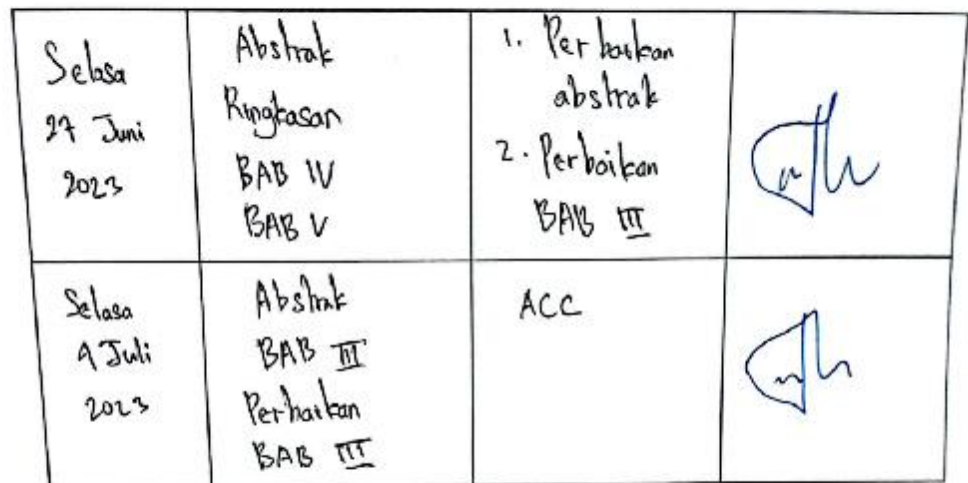 Selasa
27 Juni
2023
Abstrak
Ringkasan
BAB IV
BAB V
1. Perbaikan
abstrak
2. Perbaikan
BAB III
Selasa
4 Juli
2023
Abstrak
BAB III
Perbaikan
BAB III
ACC